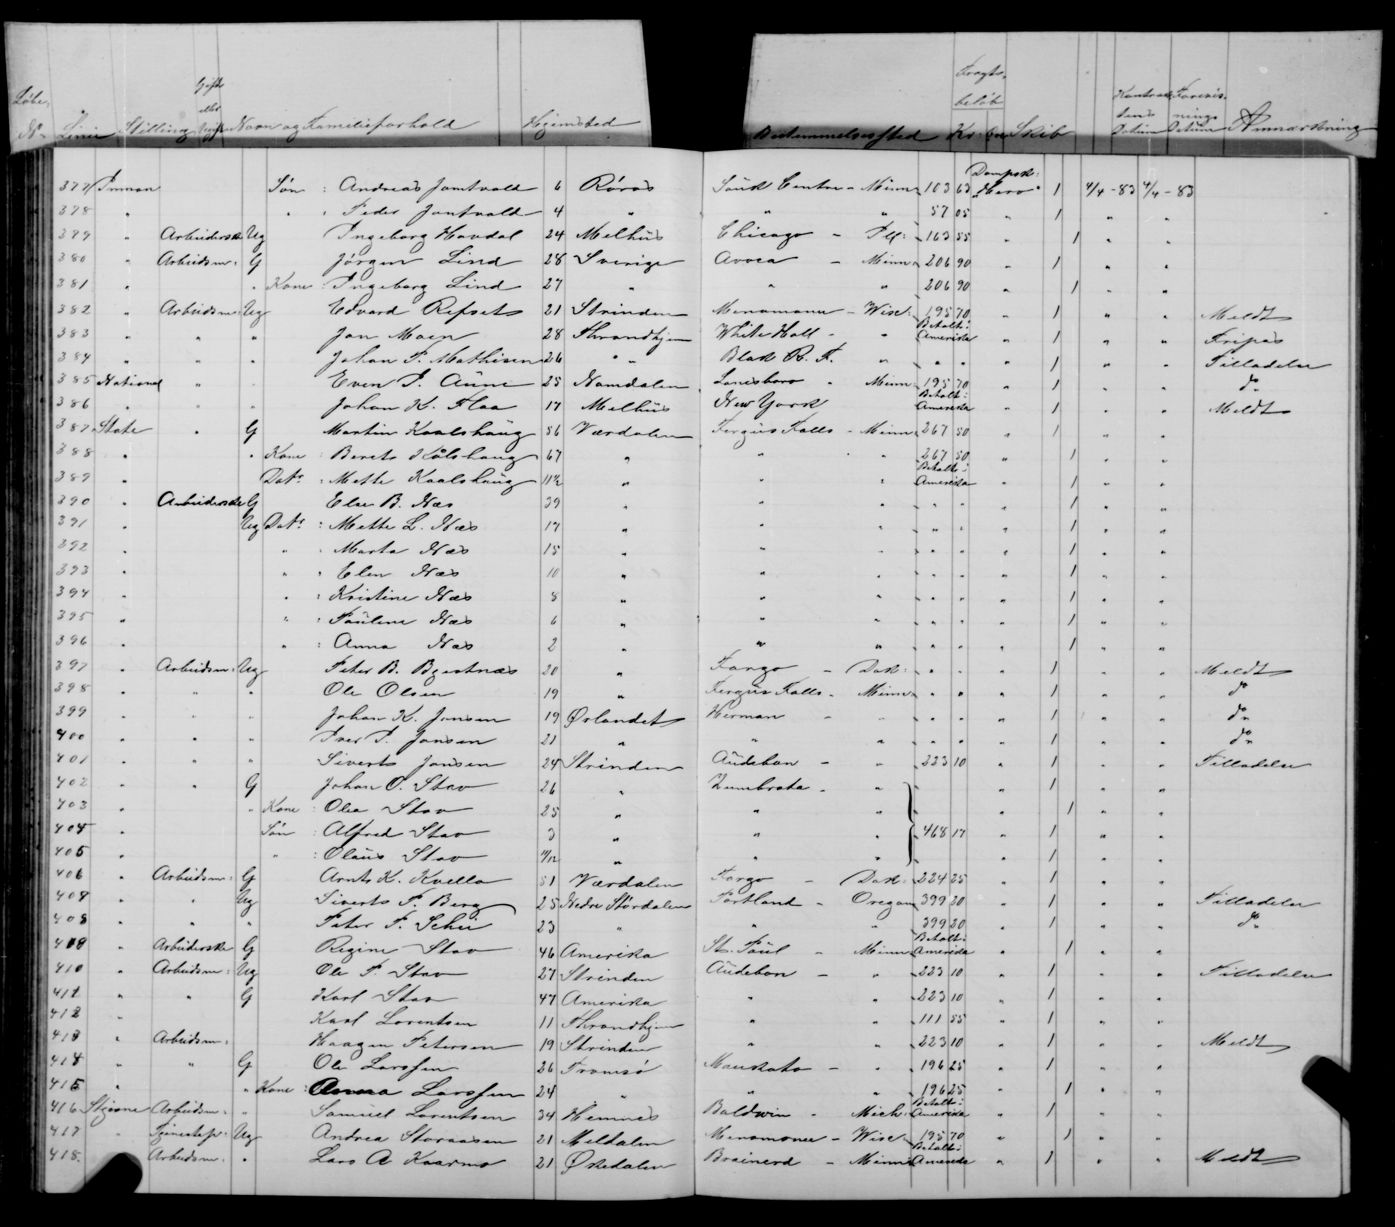 Løbe No Linie Stilling Gift eller Ugift Navn og Familieforhold Hjemsted Bestemmelsessted Fragtbeløb Kr. Skib Kontraktens Datum Forevisnings Datum Anmærkning
377 Inman Søn : Andreas Jamtvold 6 Røros Sauk Centre - Minn 103 63 Dampsk: "Hero" 1 4/4 - 83 4/4 - 83
378 " " : Peder Jamtvold 4 " " " 57 05 " 1 " "
379 " Arbeiderske Ug Ingeborg Havdal 24 Melhus Chicago - Ill: 163 55 " 1 " "
380 " Arbeidsm: G Jørgen Lind 28 Sverige Avoca - Minn 206 90 " 1 " "
381 " " Kone : Ingeborg Lind 27 " " " 206 90 " 1 " "
382 " Arbeidsm: Ug Edvard Refset 21 Strinden Menomonee - Wisc: 195 70 " 1 " " Meldt
383 " " " Jon Moen 28 Throndhjem White Hall - " Betalt: Amerika " 1 " " Fripas
384 " " " Johan P. Mathisen 26 " " Black R. F. " " " " 1 " " Tilladelse
385 National " " Even P. Aune 25 Namdalen Lanesboro " Minn 195 70 " 1 " " do
386 " " " Johan K. Flaa 17 Melhus New York Betalt: Amerika " 1 " " Meldt
387 State " G Martin Kaalshaug 56 Værdalen Fergus Falls - Minn 267 50 " 1 " "
388 " " Kone : Berets Kålshaug 67 " " " 267 50 " 1 " "
389 " Datr : Mette Kaalshaug 11½ " " " Betalt: Amerika " 1 " "
390 " Arbeiderske G Else B. Næs 39 " " " " " " 1 " "
391 " Ug Datr : Mette L. Næs 17 " " " " " " 1 " "
392 " " : Marta Næs 15 " " " " " " 1 " "
393 " " : Elen Næs 10 " " " " " " 1 " "
394 " " : Kristine Næs 8 " " " " " " 1 " "
395 " " : Pauline Næs 6 " " " " " " 1 " "
396 " " : Anna Næs 2 " " " " " " 1 " "
397 " Arbeidsm: Ug Peter B. Bjertnæs 20 " Fargo - Dak: " " " 1 " " Meldt
398 " " " Ole Olsen 19 " Fergus Falls - Minn " " " 1 " " do
399 " " " Johan K. Jonsen 19 Ørlandet Herman - " " " " 1 " " do
400 " " " Iver P. Jonsen 21 " " " " " " 1 " " do
401 " " " Siverts Jonsen 24 Strinden Audebon - " 223 10 " 1 " " Tilladelse
402 " G Johan O. Stav 26 " Zumbrota - " " 1 " "
403 " " Kone : Olea Stav 25 " " " " 1 " "
404 " Søn : Alfred Stav 3 " " " 468 17 " 1 " "
405 " " : Olaus Stav /12 " " " " 1 " "
406 " Arbeidsm: G Arnts K. Kvello 51 Værdalen Fargo - Dak: 224 25 " 1 " "
407 " " Ug Siverts P. Berg 25 Nedre Størdalen Portland - Oregon 399 20 " 1 " " Tilladelse
408 " " " Peter F. 23 " " " 399 20 " 1 " " do
409 " Arbeiderske G Regine Stav 46 Amerika St. Paul - Minn Betalt: Amerika " 1 " "
410 " Arbeidsm: Ug Ole P. Stav 27 Strinden Audebon - " 223 10 " 1 " " Tilladelse
411 " " G Karl Stav 47 Amerika " " 223 10 " 1 " "
412 " Karl Lorentsen 11 Throndhjem " " 111 55 " 1 " "
413 " Arbeidsm: Haagen Petersen 19 Strinden " " 223 10 " 1 " " Meldt
414 " " G Ole Larssen 26 Tromsø Mankato - " 196 25 " 1 " "
415 " " Kone : Anna Larssen 24 " " " 196 25 " 1 " "
416 Stjerne Arbeidsm: " Samuel Lorentsen 34 Hemnes Baldwin - Mich: Betalt: Amerika " 1 " "
417 " Tjenestep: Ug Andrea Storaasen 21 Meldalen Menomonee - Wisc 195 70 " 1 " "
418 Arbeidsm: " Lars A Kaarmo 21 Ørkedalen Brainerd - Minn Betalt: Amerika " 1 " " Meldt